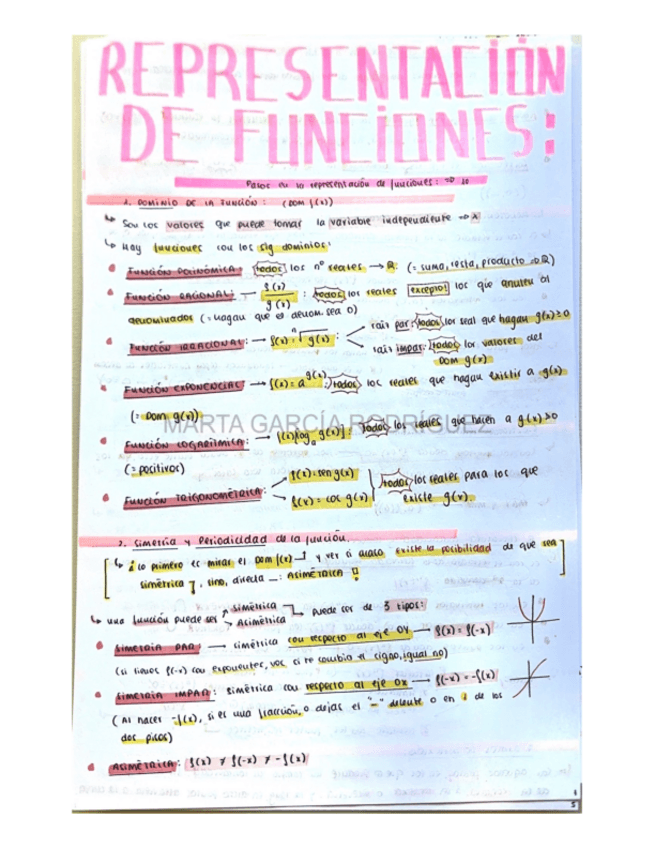 REPRESENTACIÓN
DE FUNCIONES:
Pasos en la representación de funciones: ⇒ 10
1. DOMINIO DE LA FUNCIÓN: (DOM f(x))
↳ Son los valores que puede tomar la variable independiente ⇒ x
↳ Hay funciones con los sig dominios:
• FUNCIÓN POLINÓMICA: todos los nº reales → ℝ. (= suma, resta, producto ⇒ ℝ)
• FUNCIÓN RACIONAL: → f(x)/g(x) : todos los reales excepto los que anulen al
denominador (= hagan que el denom. sea 0)
• FUNCIÓN IRRACIONAL: → f(x) = ⁿ√g(x) : raíz par: todos los real que hagan g(x)≥0
raíz impar: todos los valores del
Dom g(x)
• FUNCIÓN EXPONENCIAL: → f(x) = a^g(x) : todos los reales que hagan existir a g(x)
(= Dom g(x))
MARTA GARCÍA RODRÍGUEZ
• FUNCIÓN LOGARÍTMICA: → f(x) logₐ g(x) : todos los reales que hacen a g(x)>0
(= positivos)
• FUNCIÓN TRIGONOMÉTRICA: f(x) = sen g(x)
f(x) = cos g(x)
todos los reales para los que
existe g(x).
2. Simetría y Periodicidad de la función.
↳ ¿Lo primero es mirar el Dom f(x) y ver si acaso existe la posibilidad de que sea
simétrica, sino, directa →: ASIMÉTRICA !
↳ una función puede ser simétrica
Asimétrica
puede ser de 3 tipos:
• SIMETRÍA PAR: → simétrica con respecto al eje OY → f(x) = f(-x)
(si tienes f(-x) con exponentes, ves si te cambia el signo, igual no)
• SIMETRÍA IMPAR: simétrica con respecto al eje OX → f(-x) = -f(x)
(Al hacer -f(x), si es una fracción, o dejas el "-" delante o en 1 de los
dos pisos)
• ASIMÉTRICA: f(x) ≠ f(-x) ≠ -f(x)